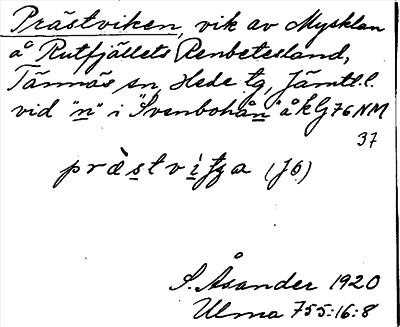 Prästviken, vik av Mysklan
å Rutfjällets Renbetesland,
Tännäs sn, Hede tg, Jämtl. l.
vid "n" i "Svenbohån" å kbl 76 NM
37
præ̀stvìtʃa (J6)
S. Åsander 1920
Ulma 755:16:8